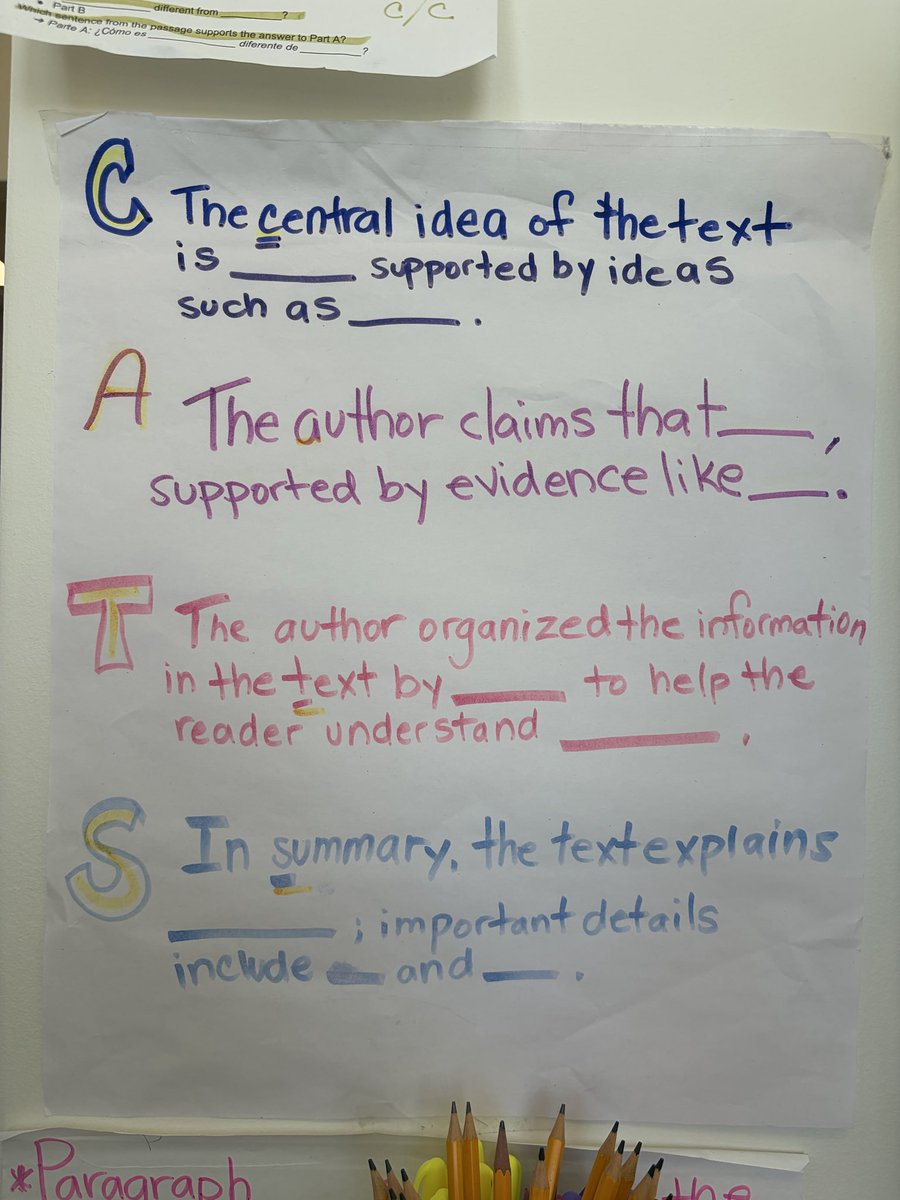 Part B
different from ________?
Which sentence from the passage supports the answer to Part A?
→ Parte A: ¿Cómo es ________ diferente de ________?
C/C
C The central idea of the text
is ____ supported by ideas
such as ____.
A The author claims that ____,
supported by evidence like ____.
T The author organized the information
in the text by ____ to help the
reader understand ____.
S In summary, the text explains
____; important details
include ____ and ____.
*Paragraph
the